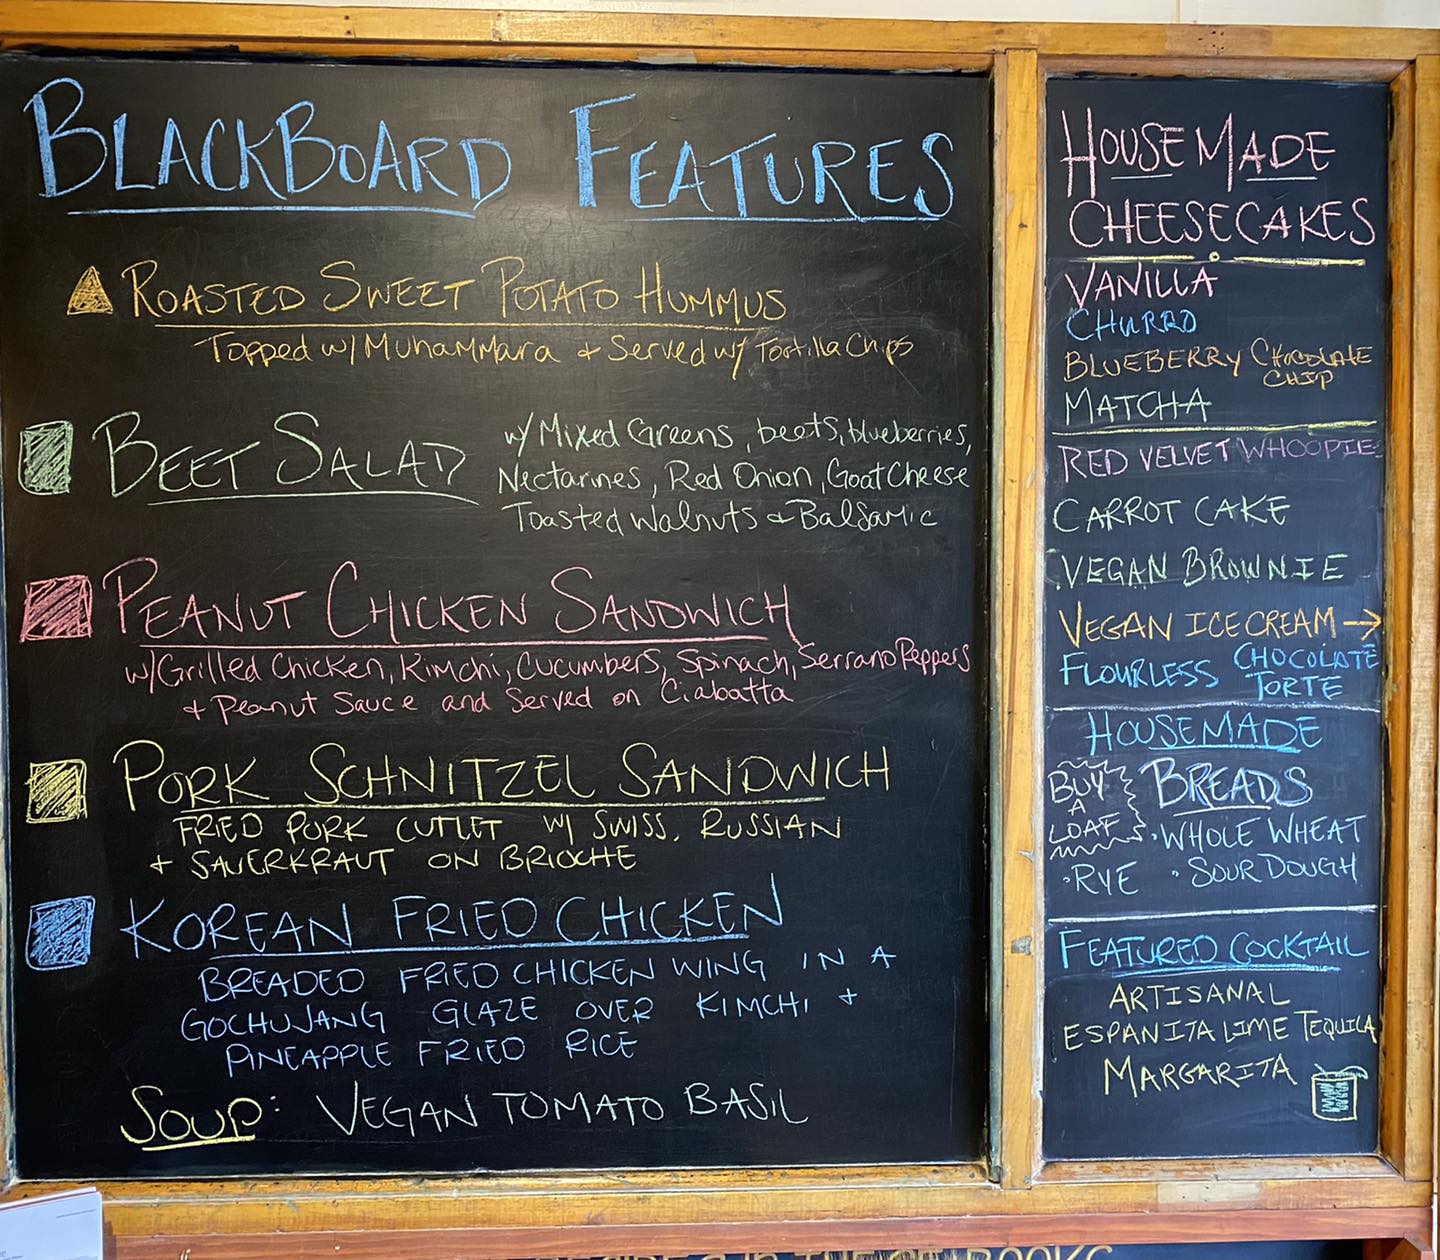 BLACKBOARD FEATURES
ROASTED SWEET POTATO HUMMUS
Topped w/ Muhammara + Served w/ Tortilla Chips
BEET SALAD
w/ Mixed Greens, beets, blueberries,
Nectarines, Red Onion, Goat Cheese
Toasted Walnuts + Balsamic
PEANUT CHICKEN SANDWICH
w/ Grilled Chicken, Kimchi, Cucumbers, Spinach, Serrano Peppers
+ Peanut Sauce and Served on Ciabatta
PORK SCHNITZEL SANDWICH
FRIED PORK CUTLET W/ SWISS, RUSSIAN
+ SAUERKRAUT ON BRIOCHE
KOREAN FRIED CHICKEN
BREADED FRIED CHICKEN WING IN A
GOCHUJANG GLAZE OVER KIMCHI +
PINEAPPLE FRIED RICE
SOUP: VEGAN TOMATO BASIL
HOUSEMADE
CHEESECAKES
VANILLA
CHURRO
BLUEBERRY CHOCOLATE
CHIP
MATCHA
RED VELVET WHOOPIE
CARROT CAKE
VEGAN BROWNIE
VEGAN ICE CREAM →
FLOURLESS CHOCOLATE
TORTE
HOUSEMADE
BREADS
BUY
A
LOAF
• WHOLE WHEAT
• RYE • SOUR DOUGH
FEATURED COCKTAIL
ARTISANAL
ESPANITA LIME TEQUILA
MARGARITA